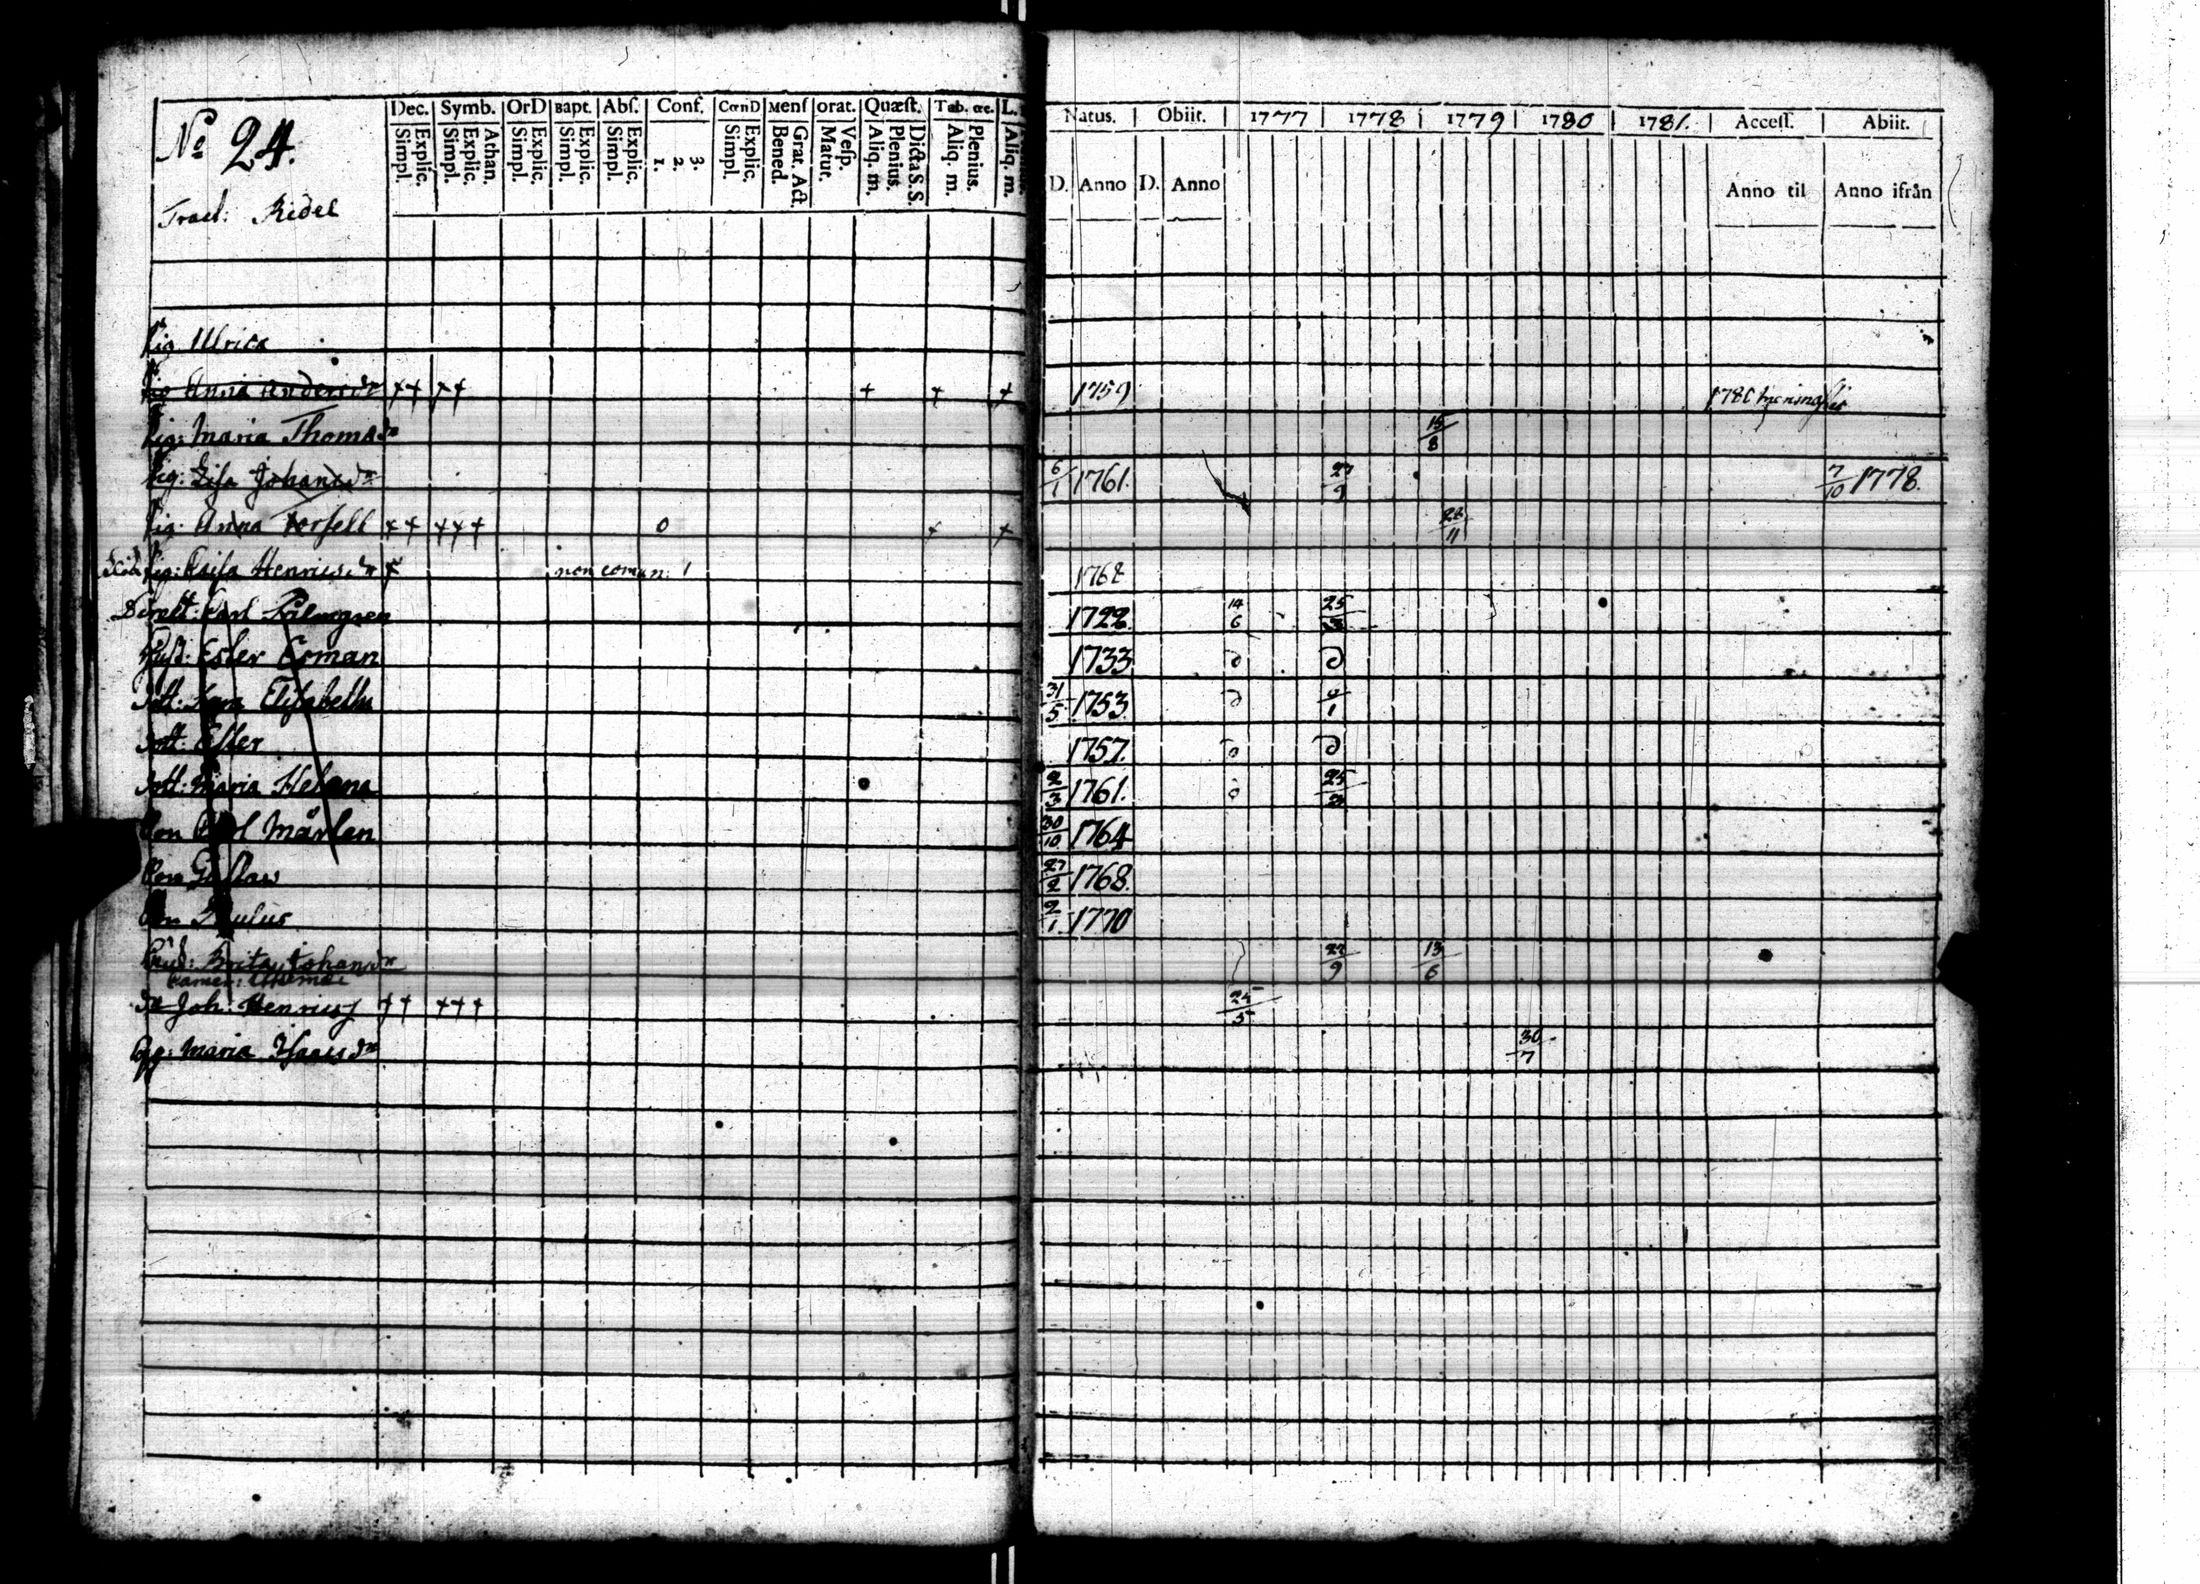 No 24.
Dec. Symb. OrD Bapt. Abs. Conf. CœnD Mens orat. Quæst. Tab. œc. L.
Simpl. Explic. Simpl. Explic. Athan. Simpl. Explic. Simpl. Explic. Simpl. Explic. 1. 2. 3. Simpl. Explic. Bened. Grat. Act. Matut. Vesp. Aliq. m. Plenius. Dicta S. S. Aliq. m. Plenius. Aliq. m.
Natus. Obiit. 1777 1778 1779 1780 1781. Access. Abiit.
D. Anno D. Anno Anno til Anno ifrån
Tract: Ridel
Pig. Ulrica
Pig Anna Andersdr ++ ++ + + + 1759 1780
Pig: Maria Thomasdr 15/8
Pig: Lisa Johansdr 6/1 1761. 27/9 7/10 1778.
Pig: Anna Forsell ++ +++ 0 + + 28/11
Pig: Caisa Henricsdr + non comun: 1 176
Carl 14/6 25/3
Hust: Ester Eoman 1733 d d
Dott: Sara Elisabeth 31/5 1753. d 9/1
Dott: Ester 1757. d d
Dott: Maria Helena 2/3 1761. d 25/3
Son Carl Mårten 30/10 1764
Son Gustaw 27/2 1768.
Son Paulus 2/1 1770
Brita Johansdr 27/9 13/6
Joh: Henrics ++ +++ 25/5
Pig: Maria Isaacsdr 30/7